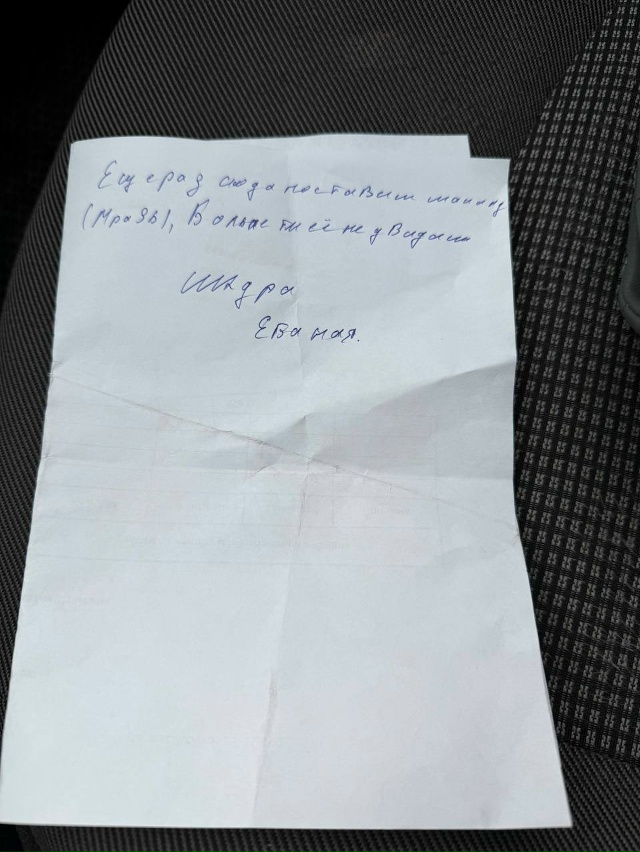 Ещ ераз сюда поставиш машину
(Мразь), Больше ты её не увидиш
Шкура
Ебаная.